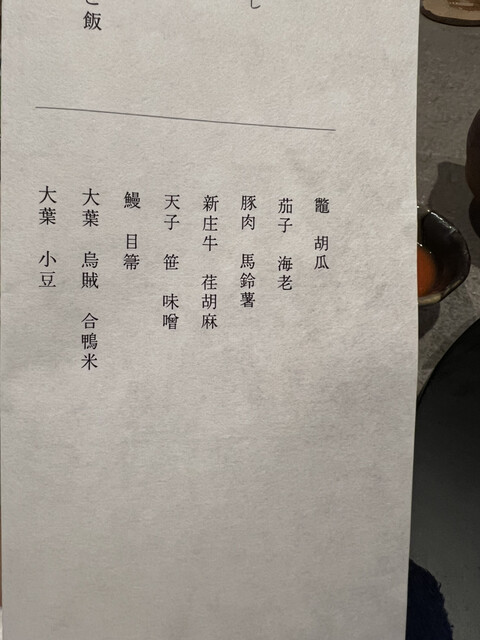 し
ご飯
鼈 胡瓜
茄子 海老
豚肉 馬鈴薯
新庄牛 荏胡麻
天子 笹 味噌
鰻 目箒
大葉 烏賊 合鴨米
大葉 小豆